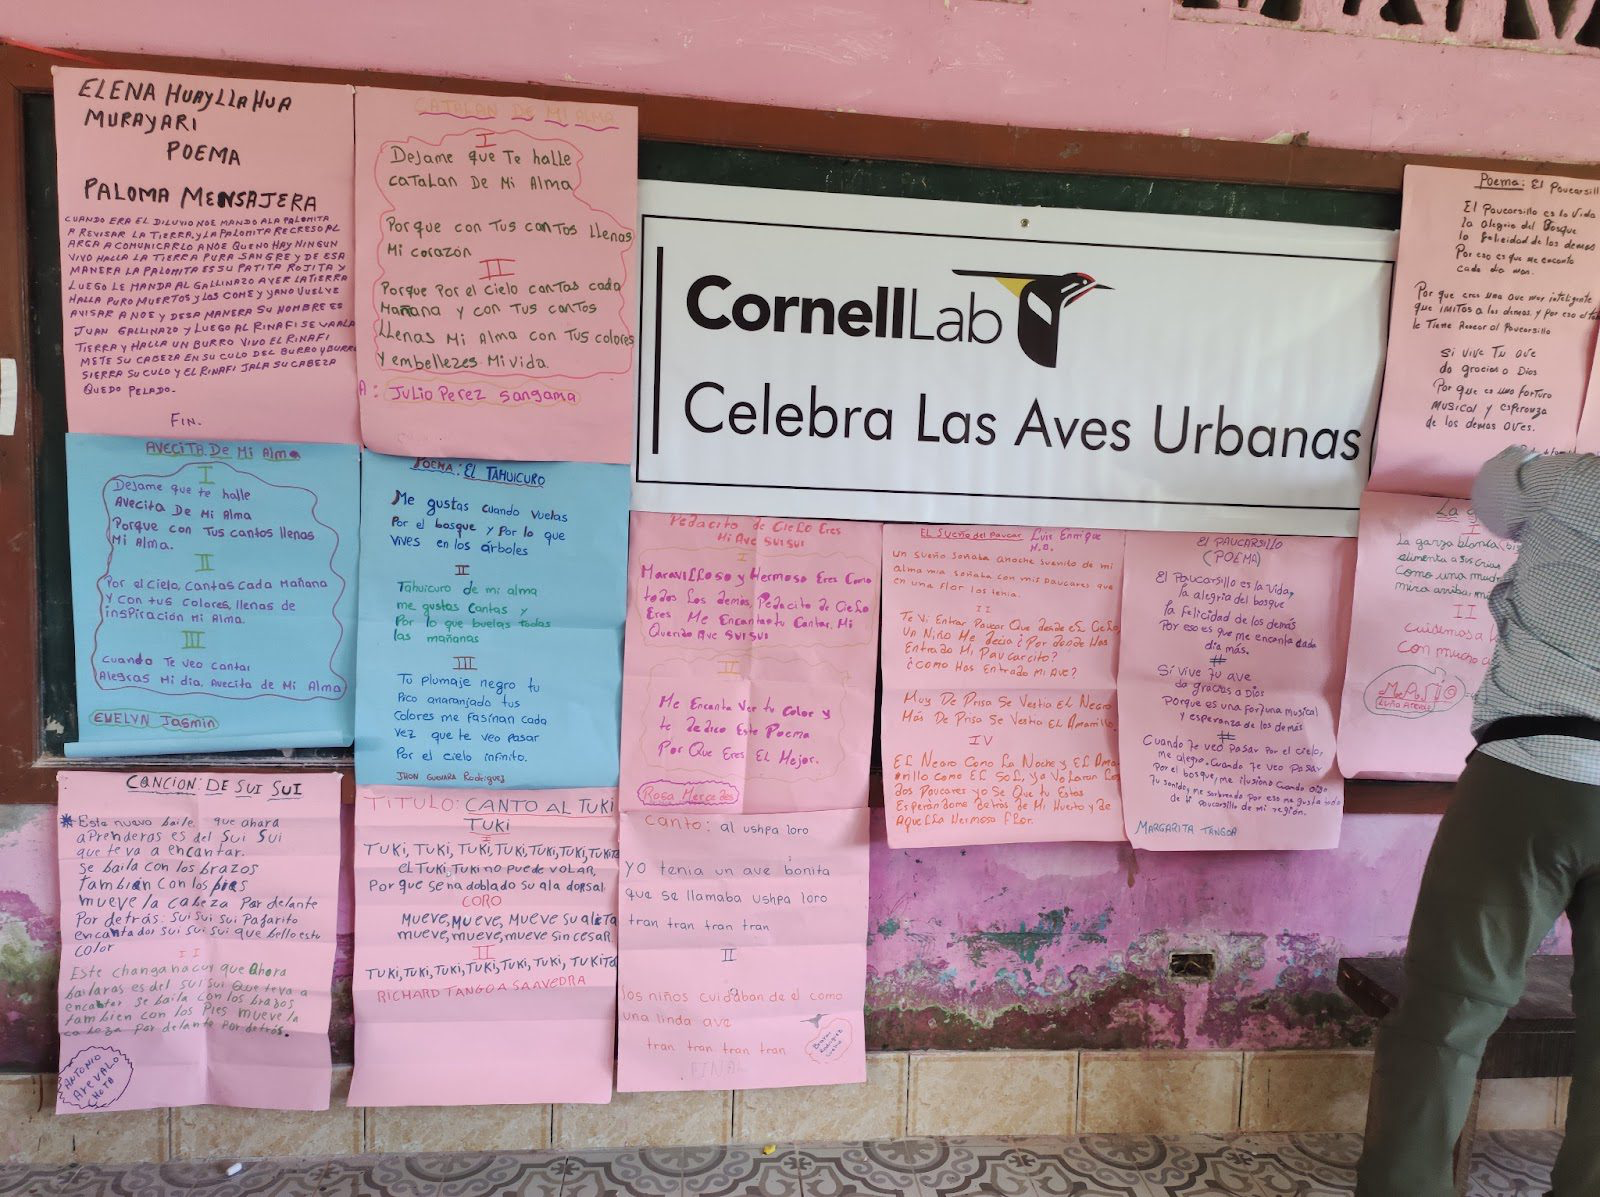 ELENA HUAYLLAHUA
MURAYARI
POEMA
PALOMA MENSAJERA
CUANDO ERA EL DILUVIO NOE MANDO ALA PALOMITA
A REVISAR LA TIERRA, Y LA PALOMITA REGRESO AL
ARGA A COMUNICARLO A NOE QUE NO HAY NINGUN
VIVO HALLA LA TIERRA PURA SANGRE Y DE ESA
MANERA LA PALOMITA ES SU PATITA ROJITA Y
LUEGO LE MANDA AL GALLINAZO A VER LA TIERRA
HALLA PURO MUERTOS Y LOS COME Y YANO VUELVE
AVISAR A NOE Y DESA MANERA SU NOMBRE ES
JUAN GALLINAZO Y LUEGO AL RINAFI SE VA A LA
TIERRA Y HALLA UN BURRO VIVO EL RINAFI
METE SU CABEZA EN SU CULO DEL BURRO Y BURRO
SIERRA SU CULO Y EL RINAFI JALA SU CABEZA
QUEDO PELADO.
FIN.
CATALAN DE MI ALMA
I
Dejame que Te halle
CATALAN De Mi Alma
Porque con Tus cantos llenas
Mi corazón
II
Porque Por el cielo cantas cada
Mañana y con Tus cantos
llenas Mi Alma con Tus colores
Y embellezes Mi vida.
A: Julio Perez Sangama
CornellLab
Celebra Las Aves Urbanas
Poema: El Paucarsill
El Paucarsillo es la vida
la alegria del Bosque
la felicidad de los demas
Por eso es que me encanta
cada dia mas.
Por que eres una ave muy inteligente
que IMITOS a los demas, y por eso el
le Tiene Amor al Paucarsillo
Si vive Tu ave
da gracias a Dios
Por que es una fortuna
MUSICAL y esperanza
de los demas aves.
AVECITA De Mi Alma
I
Dejame que te halle
Avecita De Mi Alma
Porque con Tus cantos llenas
Mi Alma.
II
Por el cielo, cantas cada Mañana
Y con tus colores, llenas de
inspiración Mi Alma.
III
Cuando Te veo cantar
Alegras Mi dia. Avecita de Mi Alma
EVELYN Jasmin
Poema: EL TAHUICURO
Me gustas cuando vuelas
Por el bosque y Por lo que
vives en los árboles
II
Tahuicuro de mi alma
me gustas cantas y
Por lo que buelas todas
las mañanas
III
Tu plumaje negro tu
Pico anaranjado tus
Colores me fasinan cada
vez que te veo pasar
Por el cielo infinito.
JHON GUEVARA Rodriguez
Pedacito de Cielo Eres
Mi Ave SUISUI
I
Maravilloso y Hermoso Eres Como
todos Los demas, Pedacito de Cielo
Eres Me Encanta tu Cantar. Mi
Querido Ave SUISUI
II
Me Encanta Ver tu Color y
te Dedico Este Poema
Por Que Eres El Mejor.
Rosa Mercedes
El Sueño del Paucar Luis Enrique
H.D.
Un sueño soñaba anoche sueñito de mi
alma mia soñaba con mis paucares que
en una flor los tenia.
II
Te Vi Entrar Paucar Que desde el Cielo
Un Niño Me decia ¿Por donde Has
Entrado Mi Paucarcito?
¿Como Has Entrado Mi Ave?
Muy De Prisa Se Vestia El Negro
Más De Prisa Se Vestia El Amarillo
IV
El Negro Como La Noche y El Ama-
rillo como El Sol, ya Volaran Los
dos Paucares yo Se Que tu Estas
Esperándome detrás de Mi Huerto y de
Aquella Hermosa Flor.
El PAUCARSILLO
(POEMA)
El Paucarsillo es la vida,
la alegria del bosque
la felicidad de los demás
Por eso es que me encanta cada
día más.
#
Sí vive tu ave
da gracias a Dios
Porque es una fortuna musical
y esperanza de los demás
#
Cuando te veo pasar por el cielo,
me alegro. Cuando te veo pasar
Por el bosque, me ilusiono Cuando oigo
tu sonido, me sorprendo por eso me gusta todo
de ti paucarsillo de mi región.
MARGARITA TANGOA
La g
I
La garza blanca
alimenta a sus crias
Como una mad
mira arriba, mi
II
Cuidemos a
Con mucho
CANCION: DE SUI SUI
* Este nuevo baile que ahora
aPrenderas es del Sui Sui
que te va a encantar.
Se baila con los brazos
también con los pies
mueve la cabeza Por delante
Por detrás: Sui Sui Sui Pajarito
encantador Sui Sui Sui que bello es tu
color
II
Este changanacuy que Ahora
bailaras es del SUI SUI Que te va a
encantar se baila con los brazos
tambien con los Pies mueve la
cabeza Por delante Por detrás.
ANTONIO
AREVALO
CHOTA
TITULO: CANTO AL TUKI
TUKI
I
TUKI, TUKI, TUKI, TUKI, TUKI, TUKI, TUKITO
el TUKI, TUKI no puede volar,
Porque se ha doblado su ala dorsal
CORO
MUEVE, MUEVE, MUEVE su alita
mueve, mueve, mueve sin cesar
II
TUKI, TUKI, TUKI, TUKI, TUKI, TUKI, TUKITO
RICHARD TANGOA SAAVEDRA
Canto: al ushpa loro
yo tenia un ave bonita
que se llamaba ushpa loro
tran tran tran tran
II
los niños cuidaban de el como
una linda ave
tran tran tran tran
FINAL